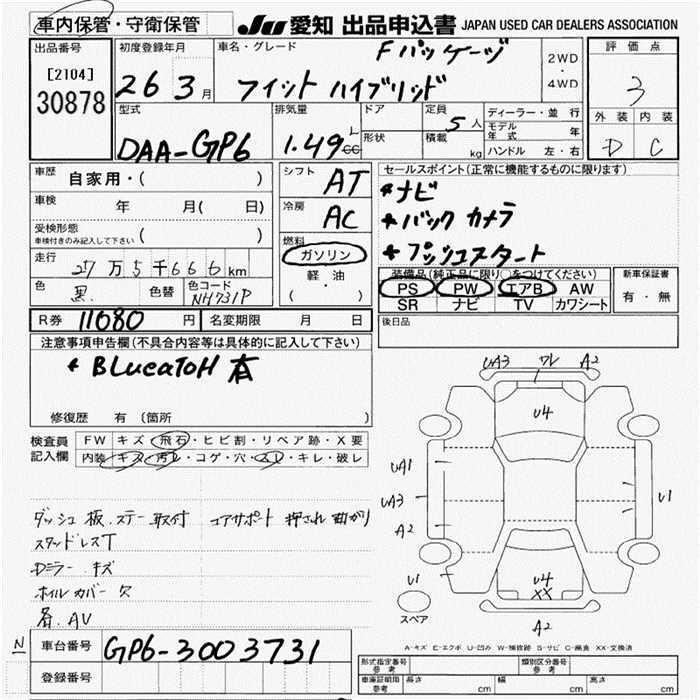 車内保管・守衛保管 JU 愛知 出品申込書 JAPAN USED CAR DEALERS ASSOCIATION
出品番号 初度登録年月 車名・グレード Fパッケージ 2WD・4WD 評価点
[2104] 30878 26 3月 フィット ハイブリッド 3
型式 排気量 ドア 定員 ディーラー・並行 外装 内装
DAA-GP6 1.49 L cc 形状 積載 5人 kg モデル年式 年 D C
ハンドル 左・右
車歴 自家用・( ) シフト AT セールスポイント(正常に機能するものに限ります)
車検 年 月( 日) 冷房 AC *ナビ
受検形態 車検付きのみ記入して下さい ( ) *バックカメラ
燃料 ガソリン *プッシュスタート
走行 27万5千666km 軽・油 ( ) 装備品(純正品に限り○をつけてください) 新車保証書
色 黒 色替 色コード NH731P PS PW エアB AW 有・無
SR ナビ TV カワシート
R券 11080円 名変期限 月 日 後日品
注意事項申告欄(不具合内容等は具体的に記入して下さい)
* BLueaToH 有
修復歴 有 (箇所 )
検査員記入欄 FW キズ・飛石・ヒビ割・リペア跡・X要
内装 キズ・汚レ・コゲ・穴・スレ・キレ・破レ
UA3 ワレ A2
U4
UA1
UA3 U1
A2
U1 U4
XX
スペア A2
ダッシュ板.ステー取付 エアサポート 押され曲がり
スタッドレスT
Dミラー キズ
ホイルカバー欠
AV
A-キズ E-エクボ U-凹み W-補修跡 S-サビ C-腐食 XX-交換済
N 車台番号 GP6-3003731
登録番号
形式指定番号 参考 類別区分番号 参考
車庫証明用 参考 長さ cm 幅 cm 高さ cm